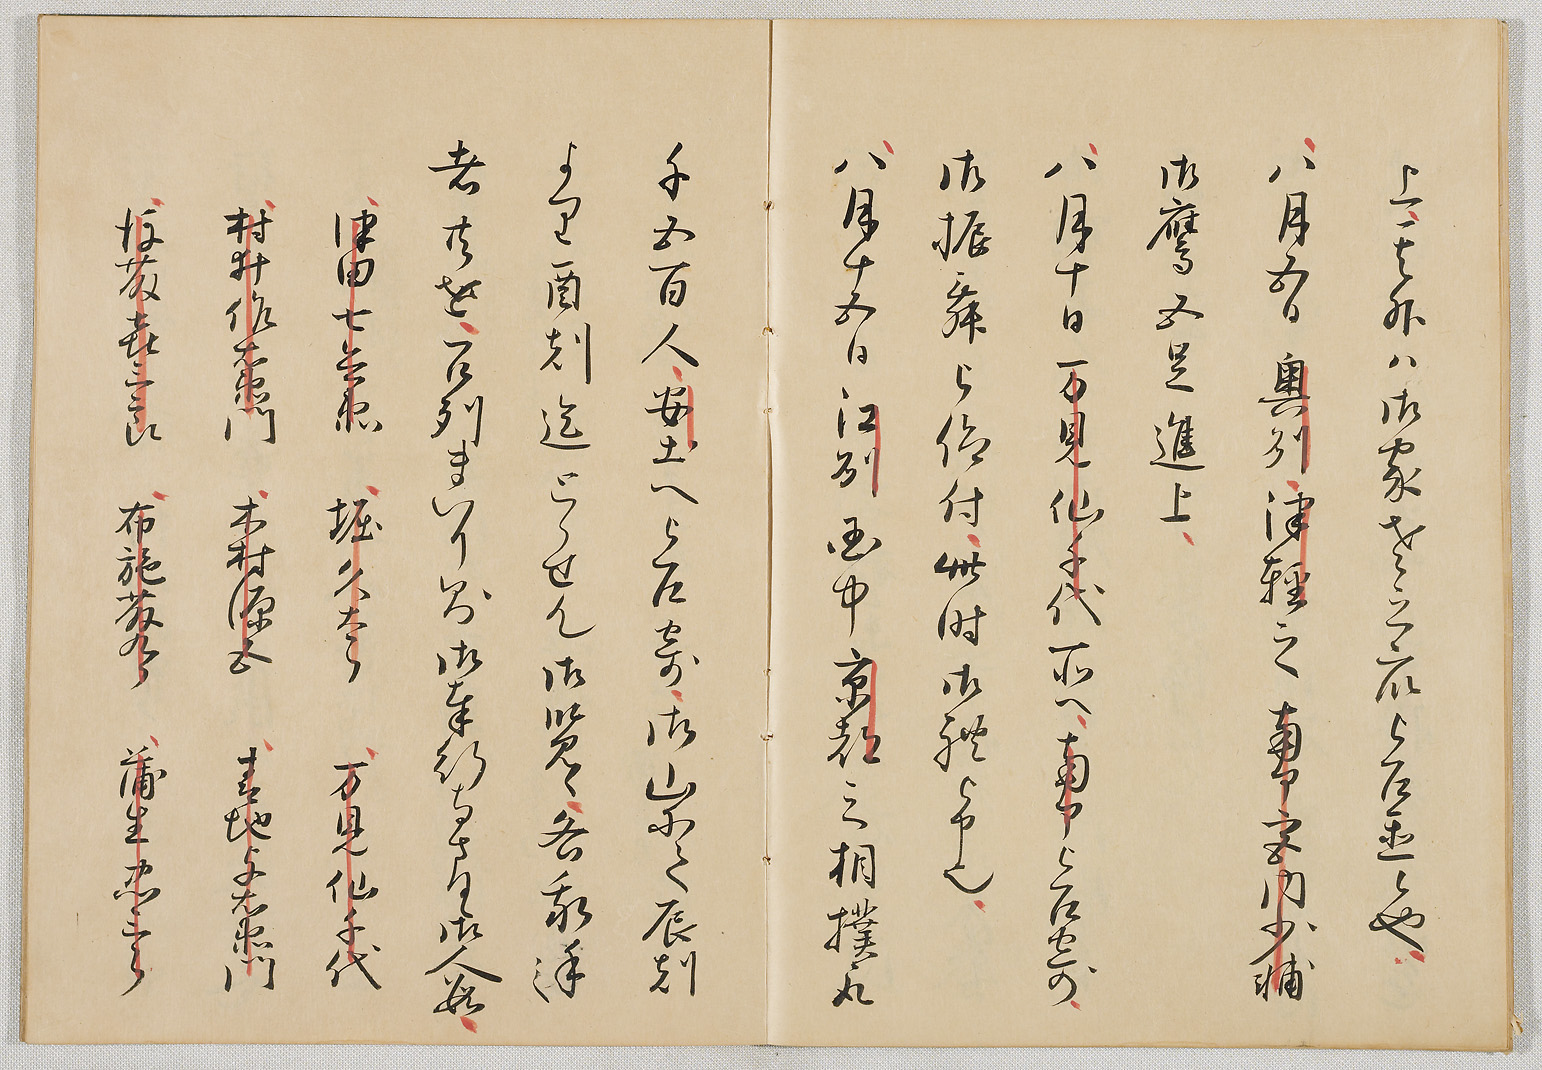 上其外ハ御家被召置候也
八月五日奥州津軽之南部宮内少輔
御鷹五足進上
八月十日万見仙千代所へ南部被召寄
御振舞被仰付此時御礼被申也
八月十五日江州国中京都之相撲取
千五百人安土へ被召寄御山にて辰刻
より酉刻迄とらせ御覧候各我手
者共を召列まいり御奉行御人数
津田七兵衛　堀久太郎　万見仙千代
村井作右衛門　木村源五　青地与右衛門
後藤喜三郎　布施藤九郎　蒲生忠三郎